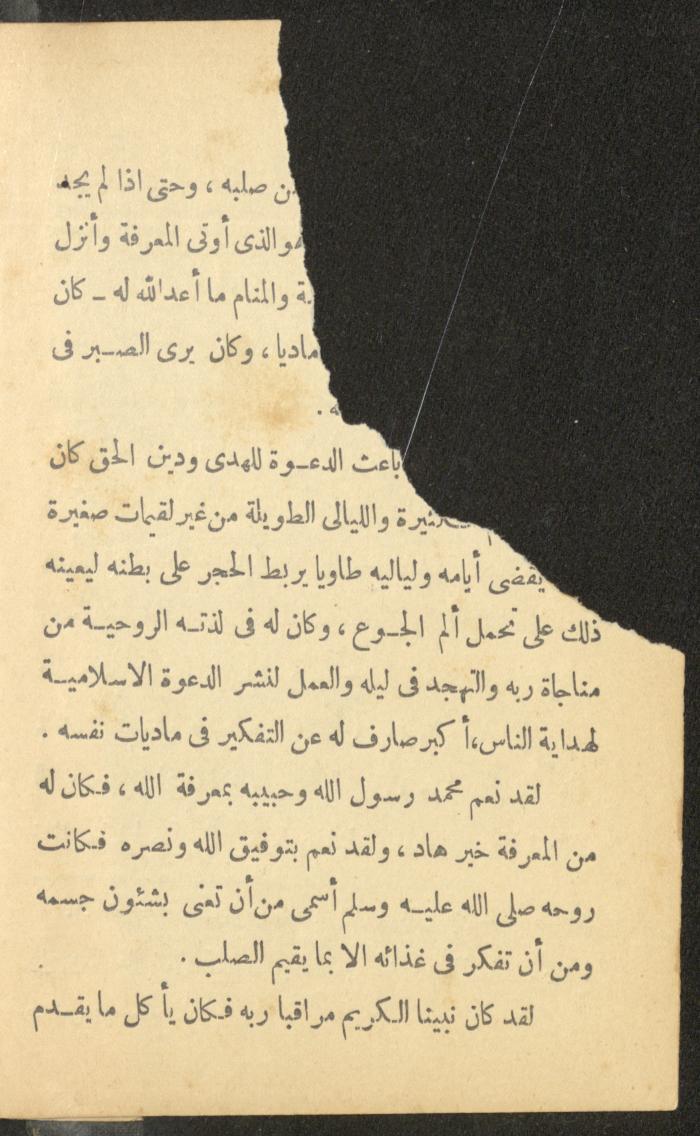 صلبه ، وحتى اذا لم يجد
هو الذى أوتى المعرفة وأنزل
والمنام ما أعد الله له ــ كان
ماديا ، وكان يرى الصبر فى
.
باعث الدعوة للهدى ودين الحق كان
والليالى الطويلة من غير لقيمات صغيرة
يقضى أيامه ولياليه طاويا يربط الحجر على بطنه ليعينه
ذلك على تحمل ألم الجوع ، وكان له فى لذته الروحية من
مناجاة ربه والتهجد فى ليله والعمل لنشر الدعوة الاسلامية
لهداية الناس، أكبر صارف له عن التفكير فى ماديات نفسه .
لقد نعم محمد رسول الله وحبيبه بمعرفة الله ، فكان له
من المعرفة خير هاد ، ولقد نعم بتوفيق الله ونصره فكانت
روحه صلى الله عليه وسلم أسمى من أن تعنى بشئون جسمه
ومن أن تفكر فى غذائه الا بما يقيم الصلب .
لقد كان نبينا الكريم مراقبا ربه فكان يأكل ما يقدم